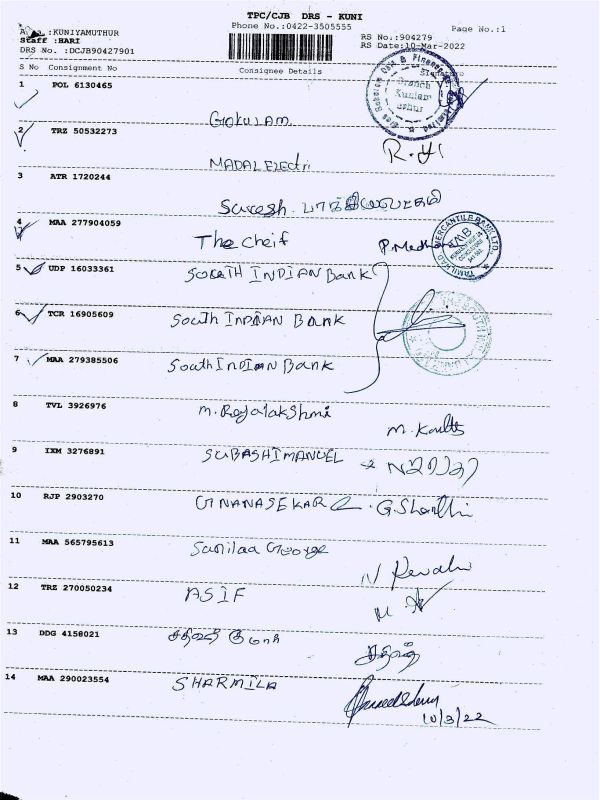 TPC/CJB DRS - KUNI
Phone No.:0422-3505555
Page No.:1
:KUNIYAMUTHUR
Staff :HARI
DRS No. :DCJB90427901
RS No.:904279
RS Date:10-Mar-2022
S No Consignment No Consignee Details Signature
1 POL 6130465 Gokulam
2 TRZ 50532273 MADAL Electri
3 ATR 1720244 Suresh
4 MAA 277904059 The cheif P.Madhan
TAMILNAD MERCANTILE BANK LTD.
TMB
5 UDP 16033361 SOUTH INDIAN Bank
6 TCR 16905609 South INDIAN Bank
7 MAA 279385506 South INDIAN Bank
8 TVL 3926976 M. Rajalakshmi
9 IXM 3276891 SUBASHIMANUEL
10 RJP 2903270 GNANASEKAR G. Shanthi
11 MAA 565795613 George
N Revathi
12 TRZ 270050234 ASIF
13 DDG 4158021
14 MAA 290023554 SHARMILA
10/3/22